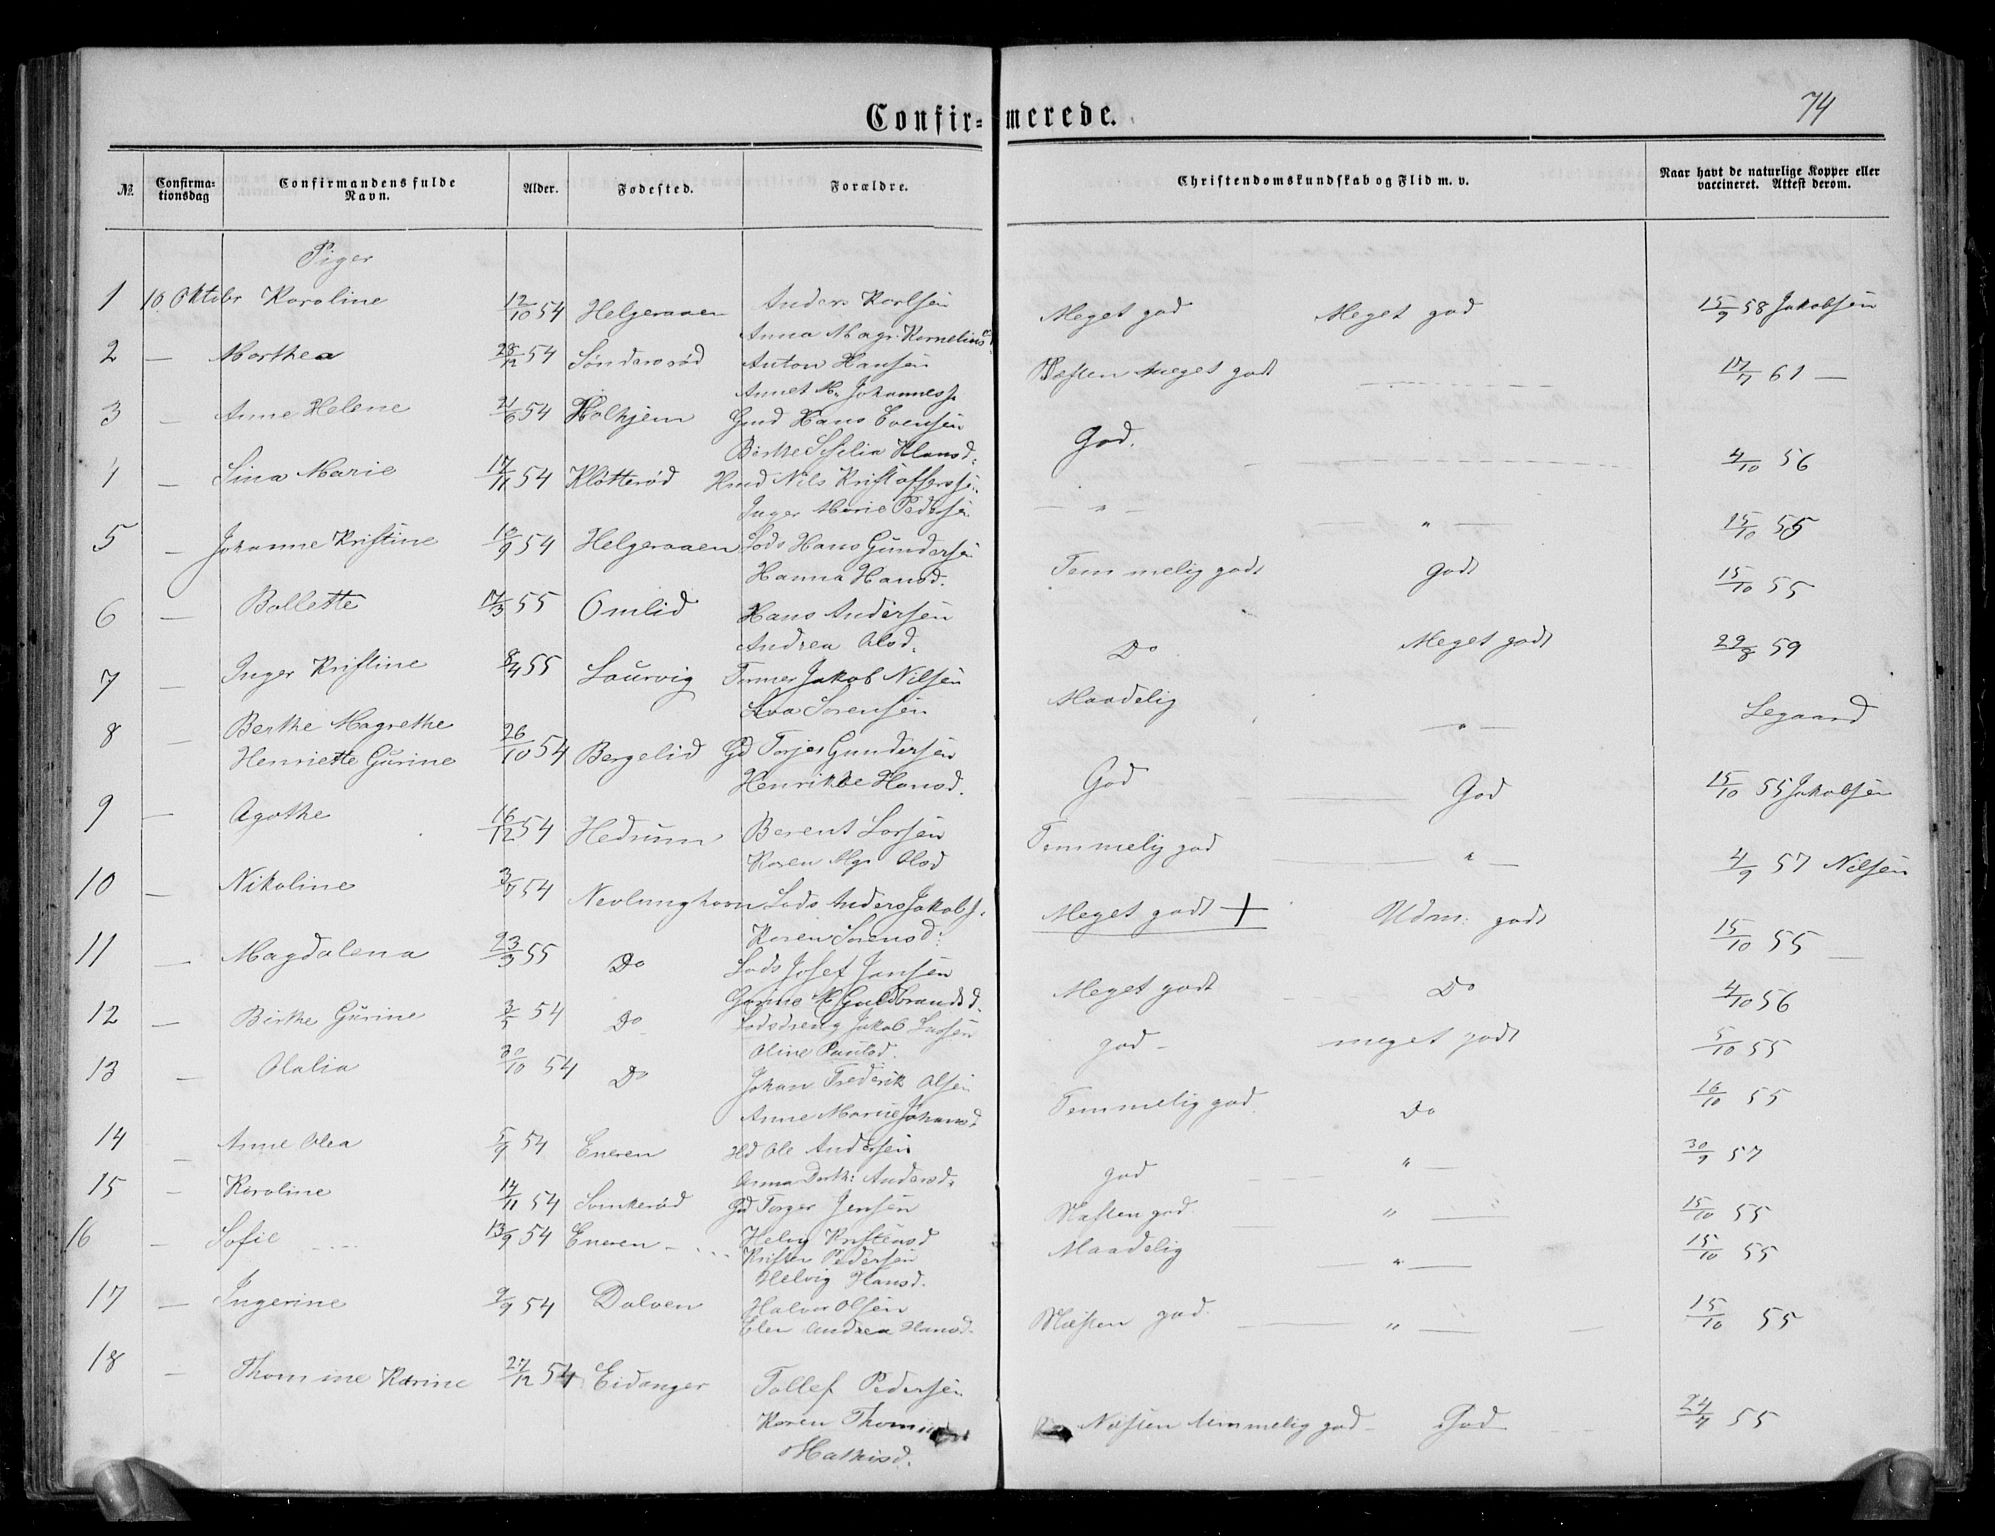 Confirmerede.
74
№.
Confirma-
tionsdag
Confirmandens fulde
Navn.
Alder.
Fødested.
Forældre.
Christendomskundskab og Flid m. v.
Naar havt de naturlige Kopper eller
vaccineret. Attest derom.
Piger
1 10 Oktobr Karoline 12/10 54 Helgeraaen Anders Karlsen Meget god Meget god 15/9 58 Jakobsen
Anna Magr. Kornelius d.
2 — Marthea 28/12 54 Søndersrød Anton Hansen Næsten meget godt 17/7 61 —
Annet M. Johanness.
3 — Anne Helene 21/6 54 Holhjem Gmd Hans Evensen God. 4/10 56
Birthe Sefelia Klausd.
4 — Sina Marie 17/11 54 Klåtterød Hmd Nils Kristoffersen — " — — " — 15/10 55
Inger Marie Pedersen
5 — Johanne Kristine 18/9 54 Helgeraaen Lods Hans Gundersen Temmelig godt Godt 15/10 55
Hanna Hansd.
6 — Bollette 17/3 55 Omlid Hans Andersen Do Meget godt 22/8 59
Andrea Olsd.
7 — Inger Kristine 8/4 55 Laurvig Tømmer Jakob Nilsen Maadelig " — Legaard
Eva Sørensen
8 — Berthe Magrethe
Henriette Gurine 26/10 54 Bergelid Gd Torjer Gundersen God God 15/10 55 Jakobsen
Henrikke Hansd.
9 — Agathe 16/12 54 Hedrum Berent Larsen Temmelig god " — 4/9 57 Nilsen
Karen Mgr Olsd
10 — Nikoline 3/7 54 Nevlunghavn Lods Anders Jakobs. Meget godt + Udm: godt 15/10 55 —
Karen Sørensd.
11 — Magdalena 23/3 55 Do Lods Josef Jansen Meget godt Do 4/10 56
Gurine M Guldbrandsd.
12 — Birthe Gurine 3/5 54 Do Lodsdreng Jakob Larsen god — meget godt 5/10 55
Oline Paulsd.
13 — Olalia 30/10 54 Do Johan Frederik Olsen Temmelig god. Do 16/10 55
Anne Marie Johansd
14 — Anne Olea 5/9 54 Eneren Hd Ole Andersen god " — 30/9 57
Anna Dorth: Andersd.
15 — Karoline 14/11 54 Somkerød Gd Torger Jensen Næsten god. " — 15/10 55
Helvig Kristensd
16 — Sofie 13/9 54 Eneren Kristen Pedersen Maadelig — " — 15/10 55
Helvig Hansd.
17 — Ingerine 9/9 54 Dolven Halvor Olsen Næsten god. — " — 15/10 55
Elen Andrea Hansd.
18 — Thomine Karine 27/12 54 Eidanger Tollef Pedersen Næsten temmelig god — God 24/7 55
Karen
Mathisd.